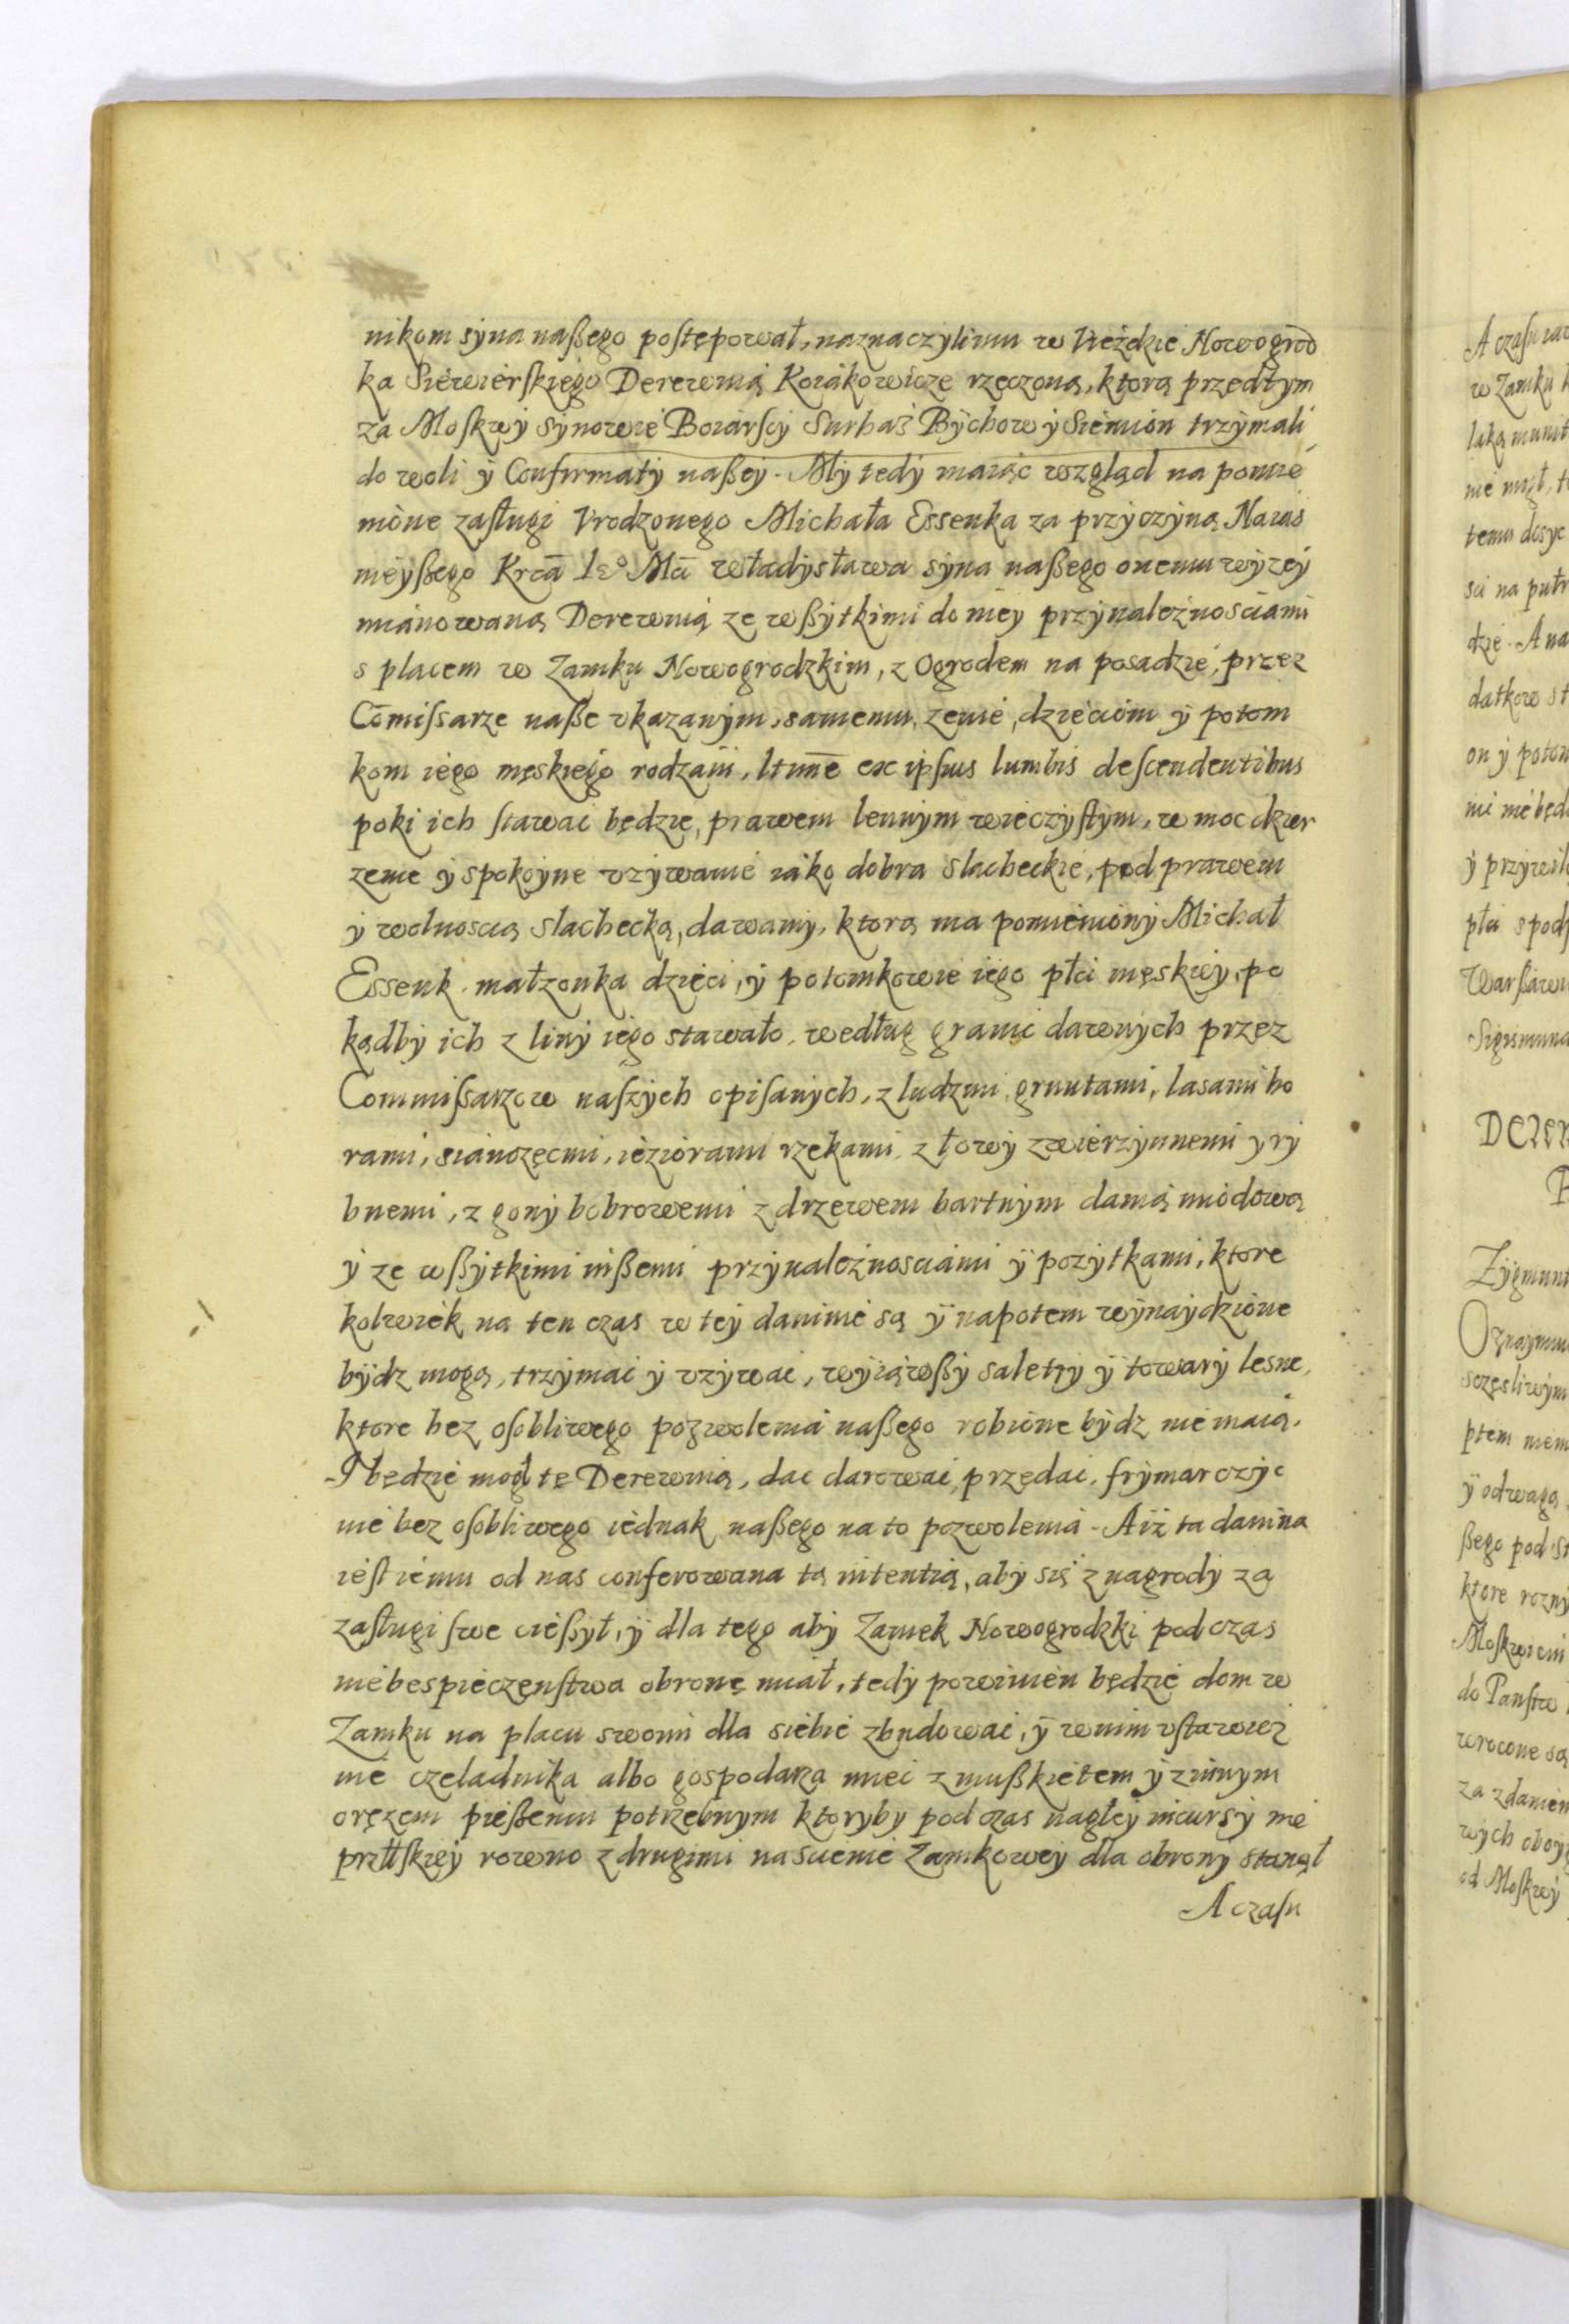 nikom syna naßego poſtępował, naznaczylimu w Vieździe Nowogrod
ka Siewierſkiego Derewnią Koziakowicze rzeczoną, ktorą przedtym
za Moſkwy synowie Boiarſcy Surhaś Bychow y Siemion trzymali
do woli y Confirmaty naßey. My tedy maiąc wzgląd na pomie
nione zaſługi Vrodzonego Michała Essenka za przyczyną Naias
nieyßego Krca Ie⁰ Mci Władysława syna naßego onemu wyzey
mianowaną Derewnią ze wßytkimi do niey przynależnosciami
s placem w Zamku Nowogrodzkim, z Ogrodem na posadzie, przez
Comiſsarze naße vkazanym, samemu, zenie, dzieciom ÿ potom
kom iego męskiego rodzaiu, ltime ex ipſius lumbis deſcendentibus
poki ich ſtawac będzie, prawem lennym wieczyſtym, w moc dzier
zenie y spokoyne vzywanie iako dobra slacheckie, pod prawem
y wolnoscią slachecką, dawamy, ktorą ma pomieniony Michał
Essenk, małzonka dzieci, y potomkowie iego płci męskiey, po
kądby ich z liny iego stawało, według granic dawnych przez
Commiſsarzow naſzych opiſanych, z ludzmi, gruntami, lasami bo
rami, sianozęcmi, ieziorami rzekami, z łowy zwierzynnemi y ry
bnemi, z gony bobrowemi z drzewem bartnym danią miodową
y ze wßytkimi inßemi przynależnosciami ÿ pozytkami, ktore
kolwiek na ten czas w tey daninie są ÿ napotem wynaydzione
bydz mogą, trzymac y vzywac, wyiąwßy saletry ÿ towary lesne,
ktore bez oſobliwego pozwolenia naßego robione bydz nie maią.
I będzie mogł tę Derewnią, dac darowac, przedac, frymarczyc
nie bez oſobliwego iednak naßego na to pozwolenia. A iż ta danina
ieſt iemu od nas conferowana tą intentią, aby się z nagrody za
zaſługi ſwe cießył, ÿ dla tego aby Zamek Nowogrodzki pod czas
niebespieczenſtwa obronę miał, tedy powinien będzie dom w
Zamku na placu swoim dla siebie zbudowac, ÿ w nim vſtawicz
nie czeladnika albo gospodarza miec z mußkietem y z innym
oręzem pießemu potrzebnym ktoryby pod czas nagłey incursÿ nie
przÿiſkiey rowno z drugimi na scienie Zamkowey dla obrony stanął
A czaſu
A czaſu
w Zamku
nie
temu dosyc
sci na
dzie. A na
datkow
on y poto
ni nie będ
y przywil
płci spod
Warßaw
Sigismund
Zygmunt
Oznaymu
sczęsliwym
ÿ odwagą
ßego pod
ktore rozny
Moſkwicin
do Panſtw
wrocone są
za zdanie
od Moſkwy